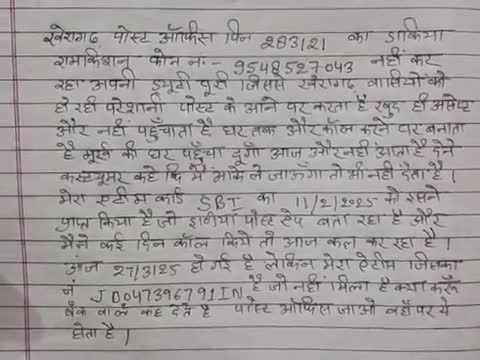 खेरागढ़ पोस्ट ऑफिस पिन 283121 का डाकिया
रामकिशन फोन नः- 9548527043 नहीं कर
रहा अपनी ड्यूटी पूरी जिससे खेरागढ़ वासियों को
हो रही परेशानी पोस्ट के आने पर करता है खुद ही अपडेट
और नहीं पहुँचाता है घर तक और कॉल करने पर बनाता
है मूर्ख की घर पहुँचा दुगाँ आज और नहीं आता है देने
कस्टयूमर कहे कि मैं आके ले जाऊँगा तो भी नहीं देता है।
मेरा एटीम कार्ड SBI का 11/2/2025 को इसने
प्राप्त किया है जो इंडीया पोस्ट ऐप बता रहा है और
मैने कई दिन कॉल किये तो आज कल कर रहा है।
आज 27/3/25 हो गई है लेकिन मेरा ऐटीम जिसका
नं JD047396791IN है जो नहीं मिला है क्या करूँ
बैंक वाले कह देते है पोस्ट ऑफिस जाओ वहाँ पर ये
होता है।